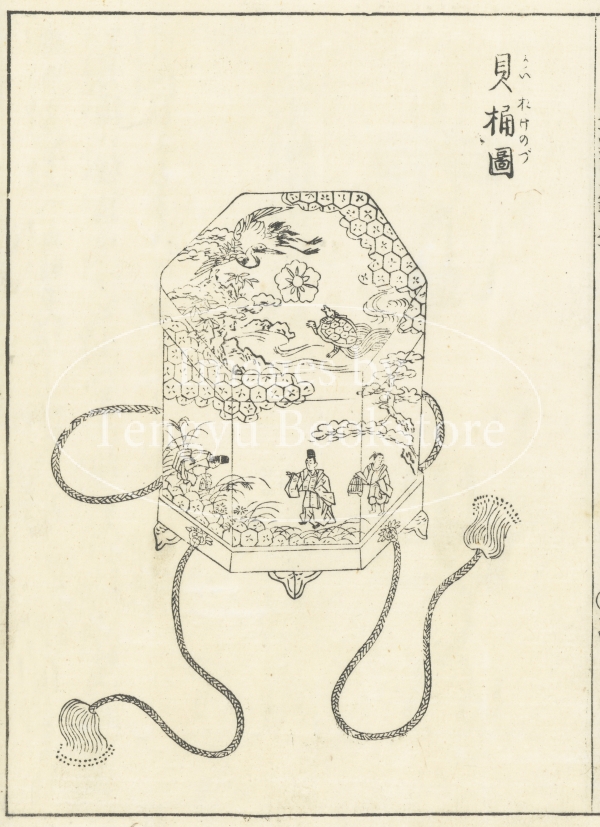 貝桶圖
かいおけのづ
Images by
Tenkyu Bookstore